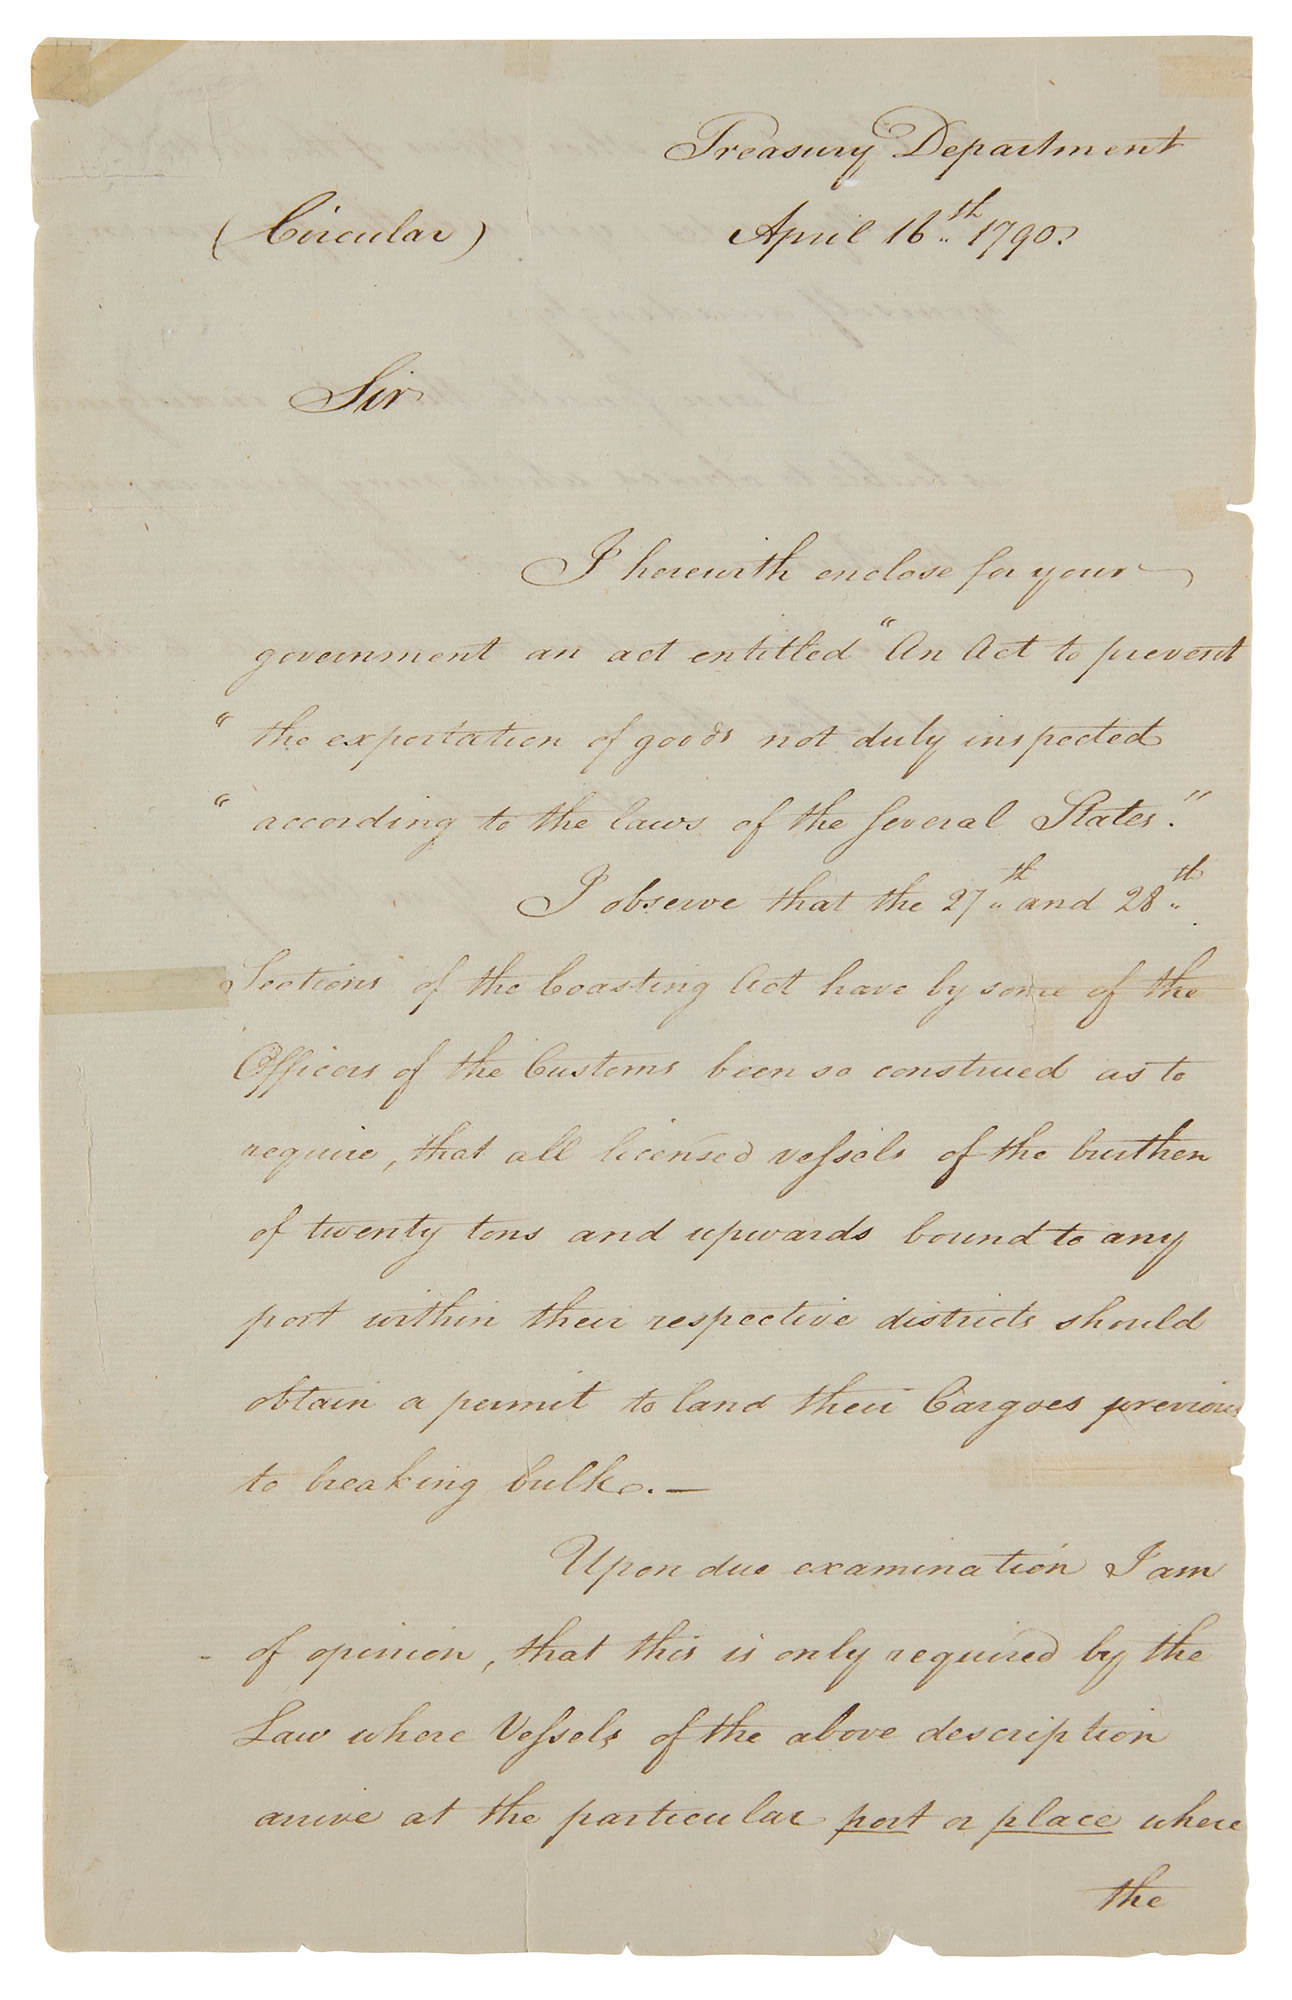 Treasury Department
(Circular) April 16th 1790.
Sir
I herewith enclose for your
government an act entitled "An Act to prevent
" the exportation of goods not duly inspected
" according to the laws of the several States."
I observe that the 27th and 28th
Sections of the Coasting Act have by some of the
Officers of the Customs been so construed as to
require, that all licensed vessels of the burthen
of twenty tons and upwards bound to any
port within their respective districts should
obtain a permit to land their Cargoes previous
to breaking bulk. —
Upon due examination I am
- of opinion, that this is only required by the
Law where Vessels of the above description
arrive at the particular port or place where
the